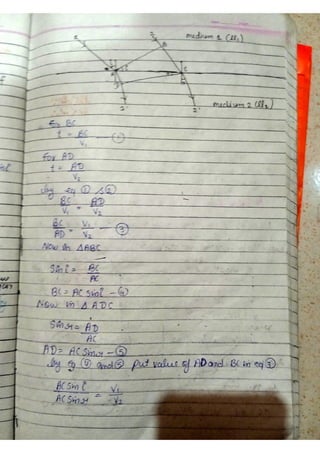 medium 1 (μ1)
B
A
C
D
medium 2 (μ2)
For BC
t = BC/V1 — ①
For AD
t = AD/V2
by eq ① & ②
BC/V1 = AD/V2
BC/AD = V1/V2 — ③
Now in △ABC
Sin i = BC/AC
BC = AC Sin i — ④
Now in △ADC
Sin r = AD/AC
AD = AC Sin r — ⑤
by eq ④ and ⑤ put value of AD and BC in eq ③
AC Sin i/AC Sin r = V1/V2